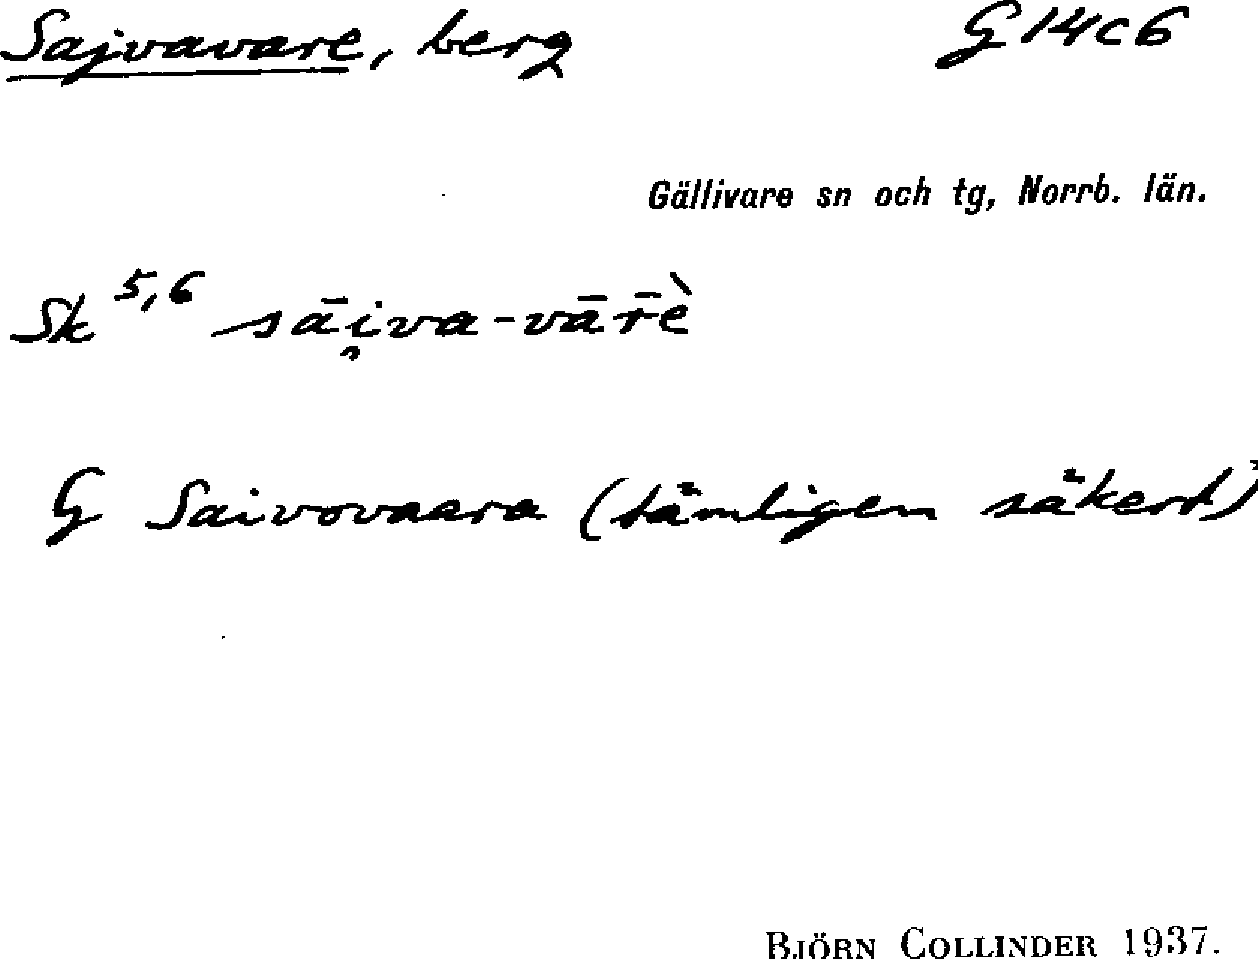 Sajvavare, berg G14c6
Gällivare sn och tg, Norrb. län.
Sk 5,6 sāi̯va-vār̄è
G Saivovaara (tämligen säkert)
BJÖRN COLLINDER 1937.